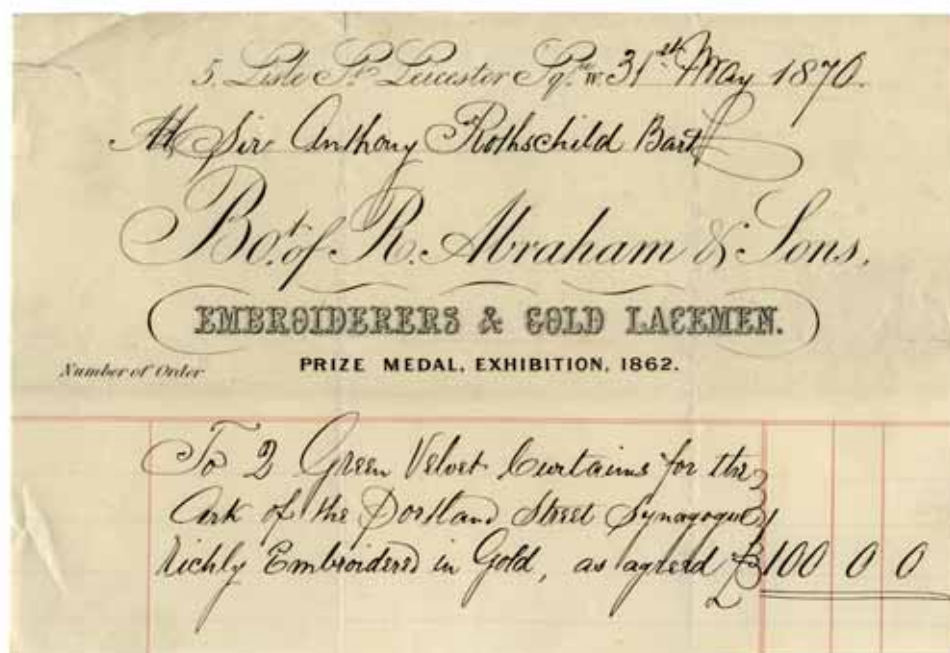 5. Lisle St. Leicester Sqre. W. 31st May 1870.
Sir Anthony Rothschild Bart
Bot. of R. Abraham & Sons,
EMBROIDERERS & GOLD LACEMEN.
PRIZE MEDAL, EXHIBITION, 1862.
Number of Order
To 2 Green Velvet Curtains for the
Ark of the Portland Street Synagogue
Richly Embroidered in Gold, as agreed £ 100 0 0